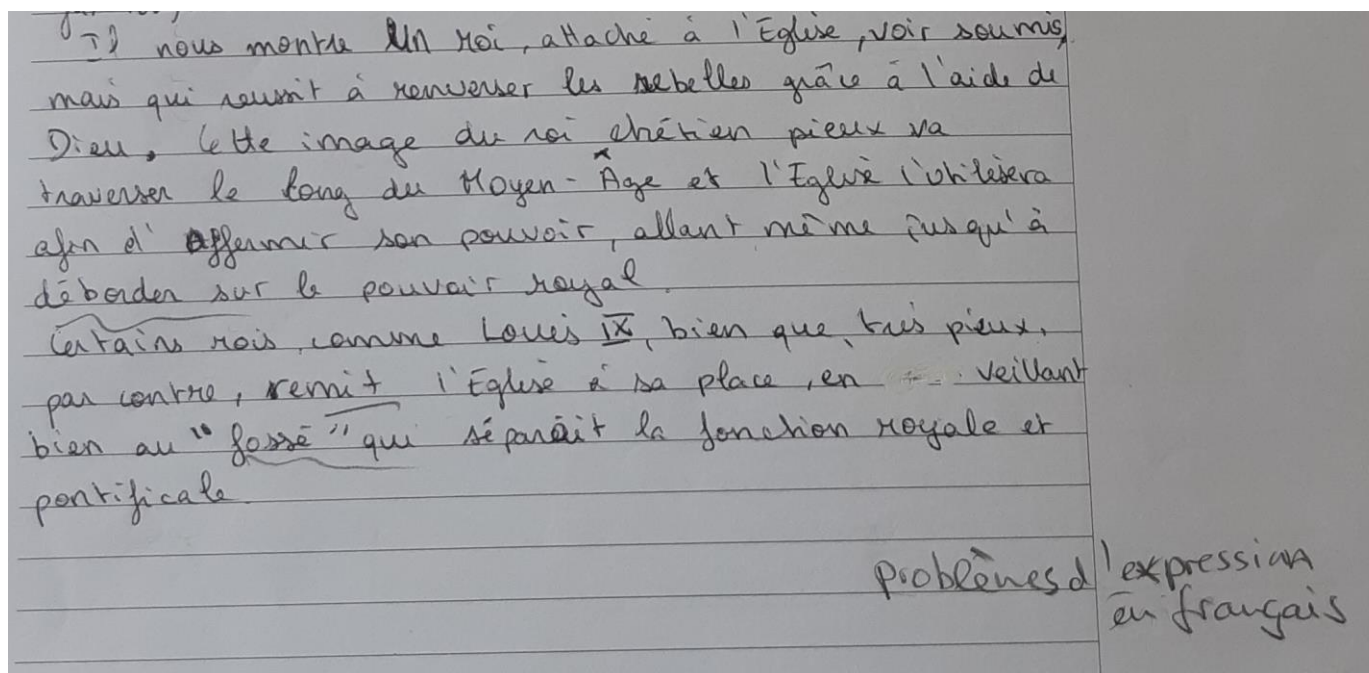 Il nous montre un roi, attaché à l'Eglise, voir soumis,
mais qui reussit à renverser les rebelles grâce à l'aide de
Dieu. Cette image du roi chrétien pieux va
traverser le long du Moyen-Âge et l'Eglise l'utilisera
afin d'affermir son pouvoir, allant même jusqu'à
déborder sur le pouvoir royal.
Certains rois, comme Louis IX, bien que très pieux,
par contre, remit l'Eglise à sa place, en veillant
bien au "fossé" qui séparait la fonction royale et
pontificale.
problèmes d'expression
en français